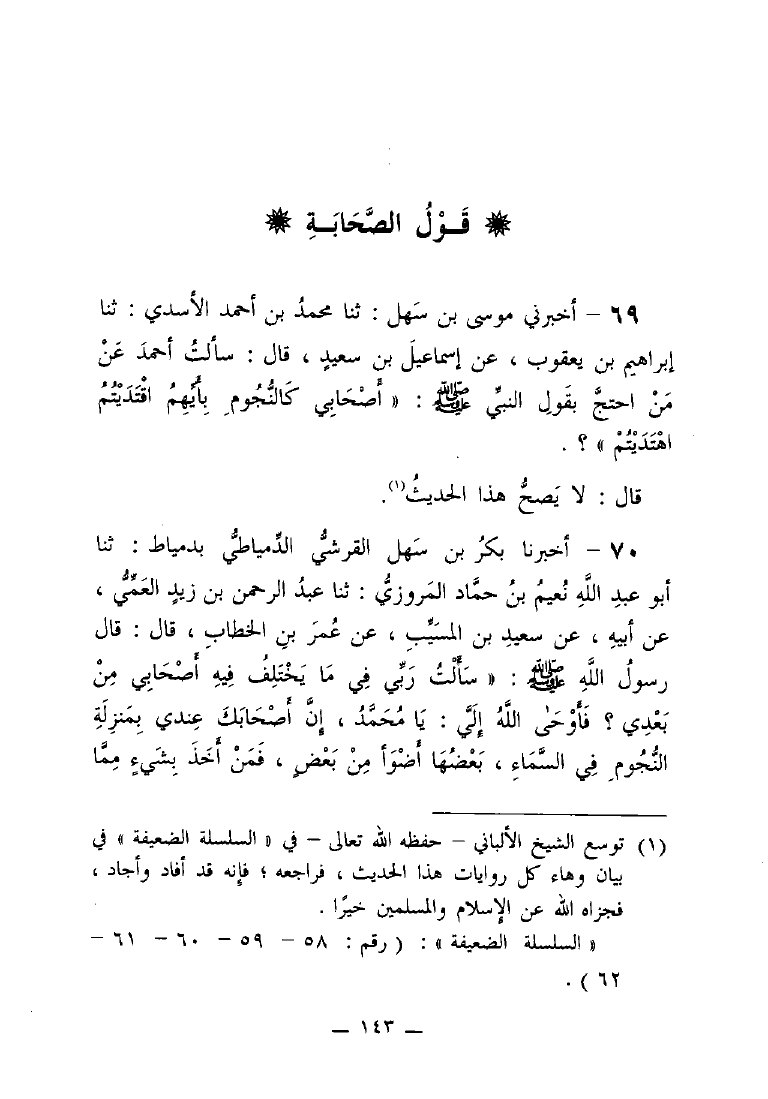 ❋ قَــوْلُ الصَّحَابَــةِ ❋
٦٩ – أخبرني موسى بن سَهل : ثنا محمدُ بن أحمد الأسدي : ثنا
إبراهيم بن يعقوب ، عن إسماعيلَ بن سعيدٍ ، قال : سألتُ أحمدَ عَنْ
مَنْ احتجَّ بقَولِ النبيِّ ﷺ : « أَصْحَابي كَالنُّجُومِ بِأَيِّهِمُ اقْتَدَيْتُمُ
اهْتَدَيْتُمْ » ؟ .
قال : لا يَصحُّ هذا الحديثُ(١).
٧٠ – أخبرنا بكرُ بن سَهل القرشيُّ الدِّمياطيُّ بدمياط : ثنا
أبو عبدِ اللَّهِ نُعيمُ بنُ حمَّاد المَروزيُّ : ثنا عبدُ الرحمن بن زيدٍ العَمِّيُّ ،
عن أبيهِ ، عن سعيدِ بن المسَيِّبِ ، عن عُمرَ بنِ الخطابِ ، قال : قال
رسولُ اللَّهِ ﷺ : « سَأَلْتُ رَبِّي فِي مَا يَخْتَلِفُ فِيهِ أَصْحَابي مِنْ
بَعْدِي ؟ فَأَوْحَى اللَّهُ إِلَيَّ : يَا مُحَمَّدُ ، إِنَّ أَصْحَابَكَ عِندي بِمَنزِلَةِ
النُّجُومِ فِي السَّمَاءِ ، بَعْضُهَا أَضْوَأ مِنْ بَعْضٍ ، فَمَنْ أَخَذَ بِشَيءٍ مِمَّا
(١) توسع الشيخ الألباني – حفظه الله تعالى – في « السلسلة الضعيفة » في
بيان وهاء كل روايات هذا الحديث ، فراجعه ؛ فإنه قد أفاد وأجاد ،
فجزاه الله عن الإسلام والمسلمين خيرًا .
« السلسلة الضعيفة » : ( رقم : ٥٨ – ٥٩ – ٦٠ – ٦١ –
٦٢ ) .
— ١٤٣ —